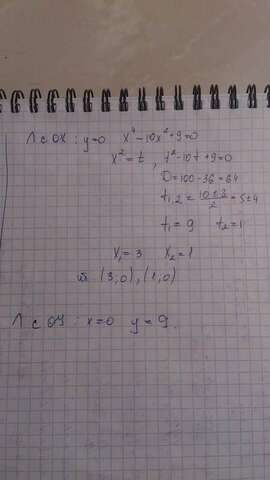 Λ с OX : y=0 x⁴-10x²+9=0
x²=t , t²-10t+9=0
D=100-36=64
t₁,₂ = (10±8)/2 = 5±4
t₁=9 t₂=1
x₁=3 x₂=1
(3;0), (1,0)
Λ с OY : x=0 y=9.